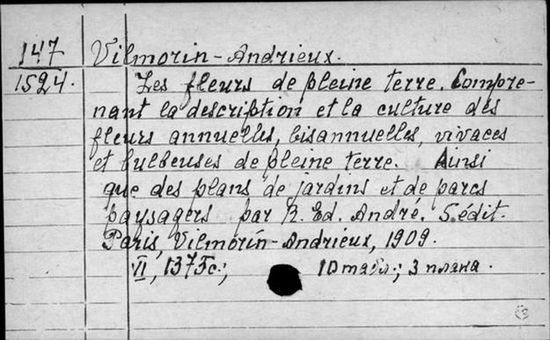 147 Vilmorin-Andrieux.
1524. Les fleurs de pleine terre. Compre-
nant la description et la culture des
fleurs annuelles, bisannuelles, vivaces
et bulbeuses de pleine terre. Ainsi
que des plans de jardins et de parcs
paysagers par R. Ed. André. 5 édit.
Paris, Vilmorin-Andrieux, 1909.
VI, 1375 с.; 10 табл.; 3 плана.